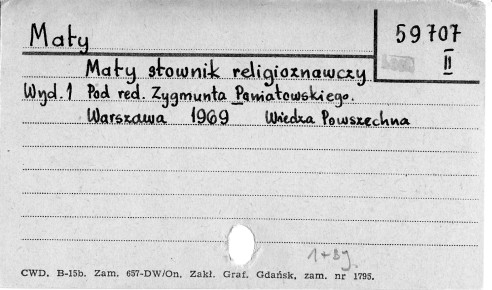 Mały
59707
II
Mały słownik religioznawczy
Wyd. 1 Pod red. Zygmunta Poniatowskiego.
Warszawa 1969 Wiedza Powszechna
1+BJ.
CWD. B-15b. Zam. 657-DW/On. Zakł. Graf. Gdańsk, zam. nr 1795.